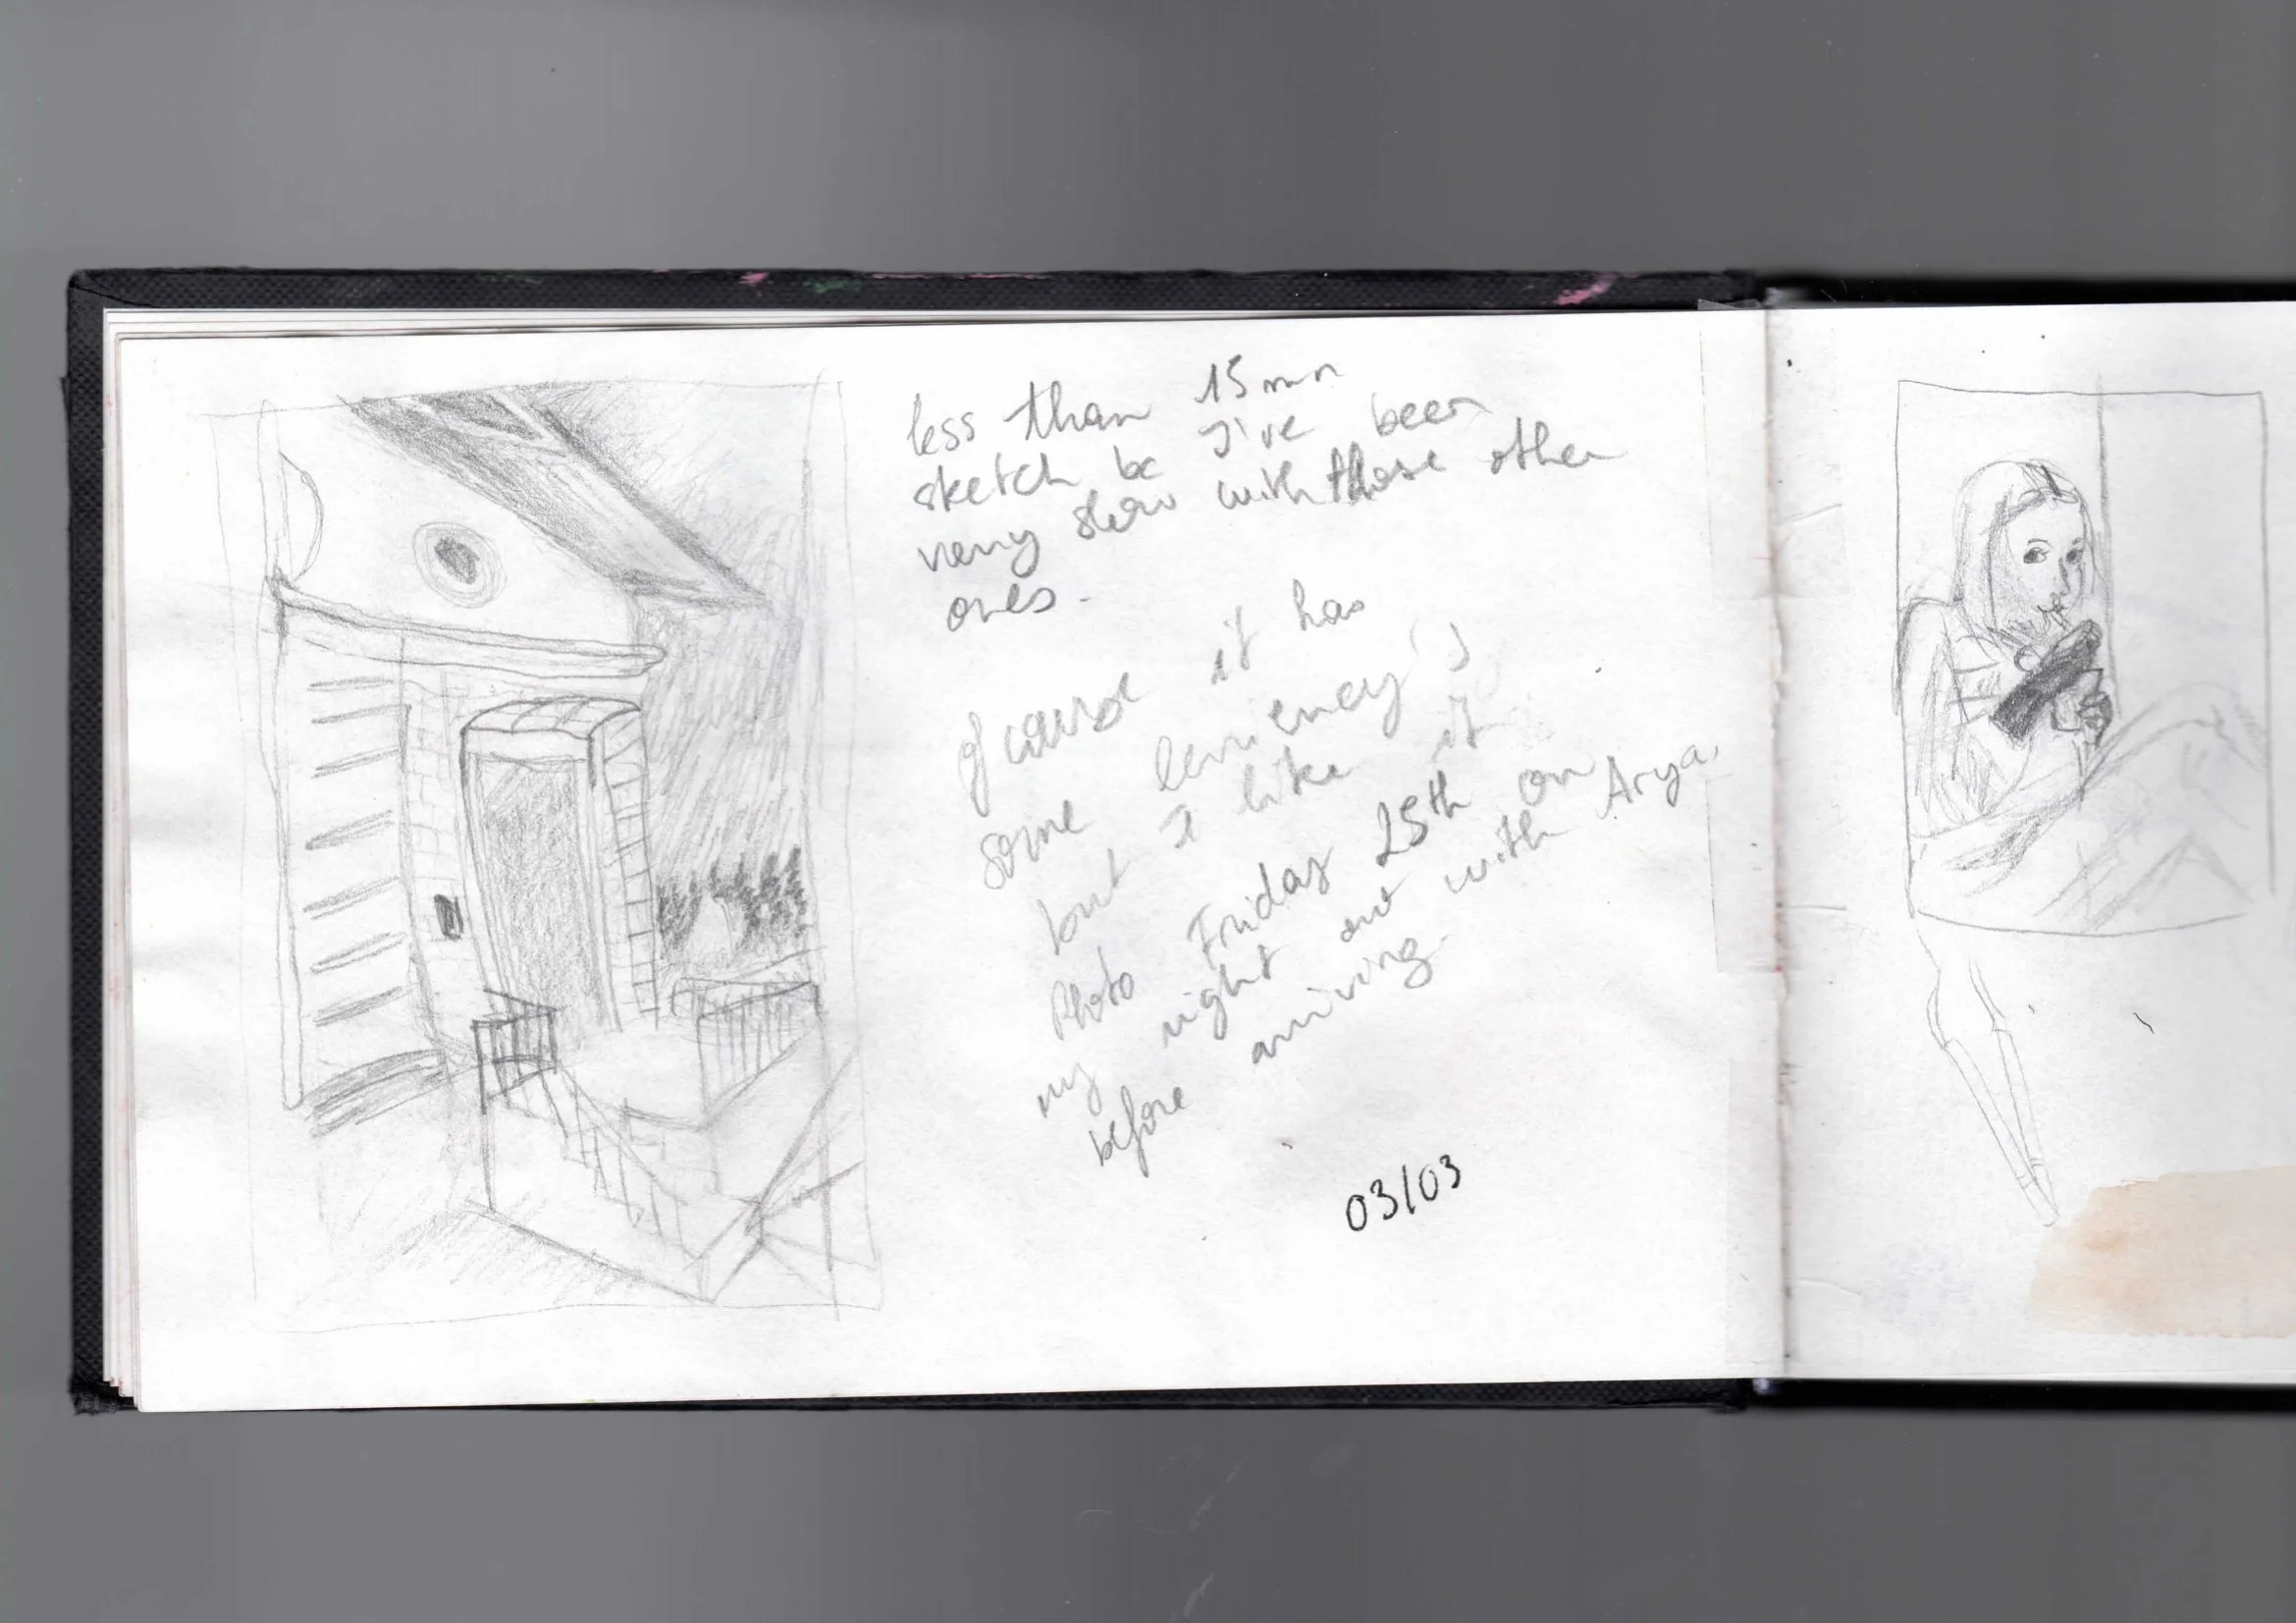 less than 15 min
sketch bc I've been
very slow with those other
ones.
of course it has
some leniency's
but I like it
Photo Friday 25th on
my night out with Arya,
before arriving.
03/03